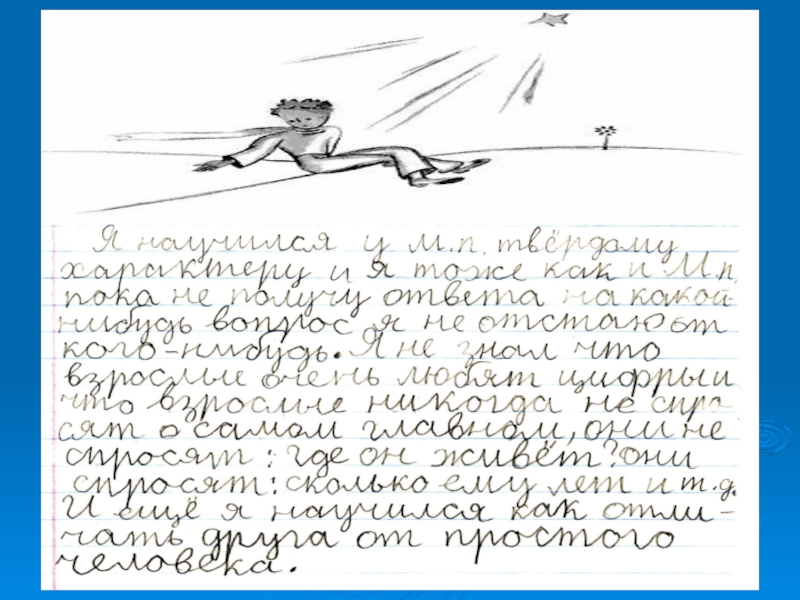 Я научился у М.п. твёрдому
характеру и я тоже как и М.п.
пока не получу ответа на какой-
нибудь вопрос я не отстаю от
кого-нибудь. Я не знал что
взрослые очень любят цифры и
что взрослые никогда не спро-
сят о самом главном, они не
спросят: где он живёт? они
спросят: сколько ему лет и т.д.
И ещё я научился как отли-
чать друга от простого
человека.